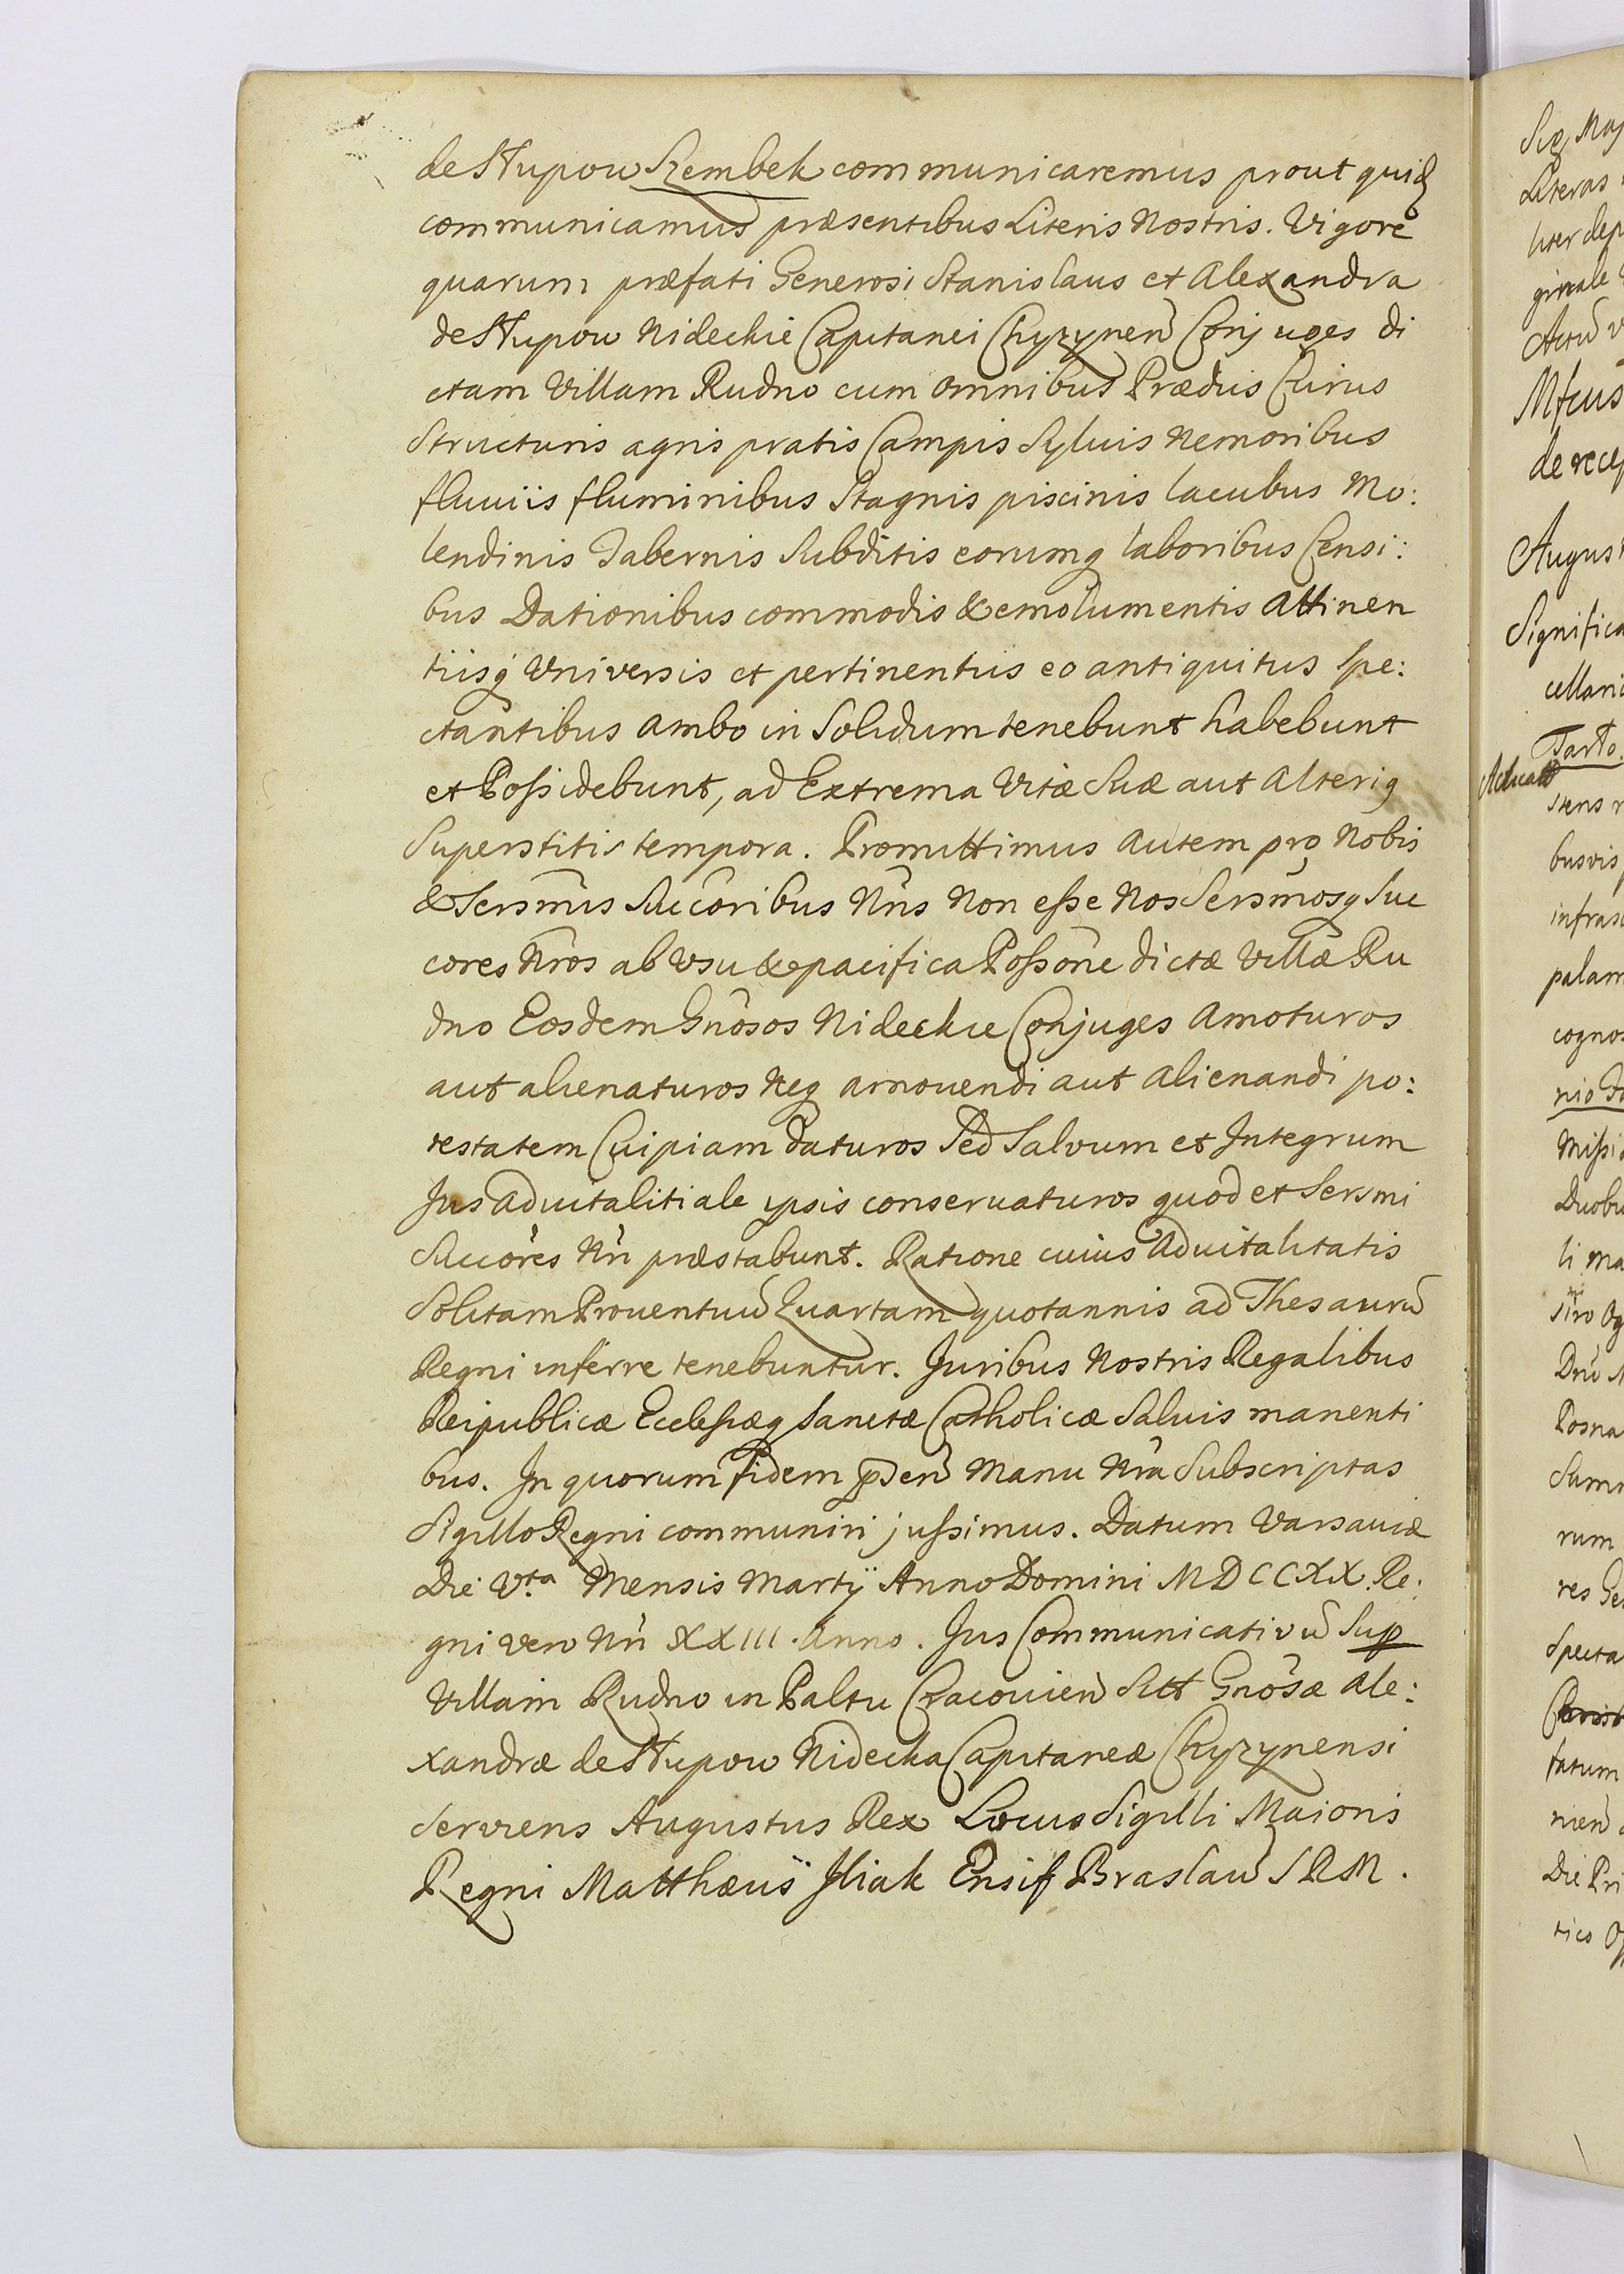 de Słupow Szembek communicaremus prout quidē
communicamus præsentibus Literis Nostris. Vigore
quarum præfati Generosi Stanislaus et Alexandra
de Słupow Nideckie Capitanei Chyzynen̄ Conjuges di
ctam Villam Rudno cum omnibus Prædiis Curiis
Structuris agris pratis Campis Sylvis Nemoribus
fluviis fluminibus Stagnis piscinis lacubus Mo:
lendinis Tabernis Subditis eorumq laboribus Censi:
bus Dationibus commodis & emolumentis Attinen
tiisq Universis et pertinentiis eo antiquitus Spe:
ctantibus ambo in Solidum tenebunt habebunt
et Possidebunt, ad Extrema Vitæ Suæ aut Alterig
Superstitis tempora. Promittimus Autem pro Nobis
& Sersm̄is Succ̄oribus Nr̄is Non esse Nos Sersm̄osq Suc
cores Nr̄os ab Usu & pacifica Posson̄e dictæ Villæ Ru
dno Eosdem Gnōsos Nideckie Conjuges Amoturos
aut alienaturos Neq amovendi aut Alienandi po:
testatem Cuipiam daturos Sed Salvum et Integrum
Jus Advitalitiale ipsis conservaturos quod et Sersmi
Succōres Nr̄i præstabunt. Ratione cuius Advitalitatis
Solitam Proventuū Quartam quotannis ad Thesaurū
Regni inferre tenebuntur. Juribus Nostris Regalibus
Reipublicæ Ecclesiæq Sanctæ Catholicæ Salvis manenti
bus. In quorum fidem p̄sen̄ Manu Nr̄a Subscriptas
Sigillo Regni communiri jussimus. Datum Varsaviæ
Die Vta Mensis Martÿ Anno Domini MDCCXX. Re:
gni vero Nr̄i XXIII. Anno. Jus Communicativū Sup
Villam Rudno in Paltu Cracovien̄ Sitt Gnōsæ Ale:
xandræ de Słupow Nidecka Capitaneæ Chyzynensi
Serviens Augustus Rex Locus Sigilli Maioris
Regni Matthæus Iliak Ensif Braslav̄ SRM.